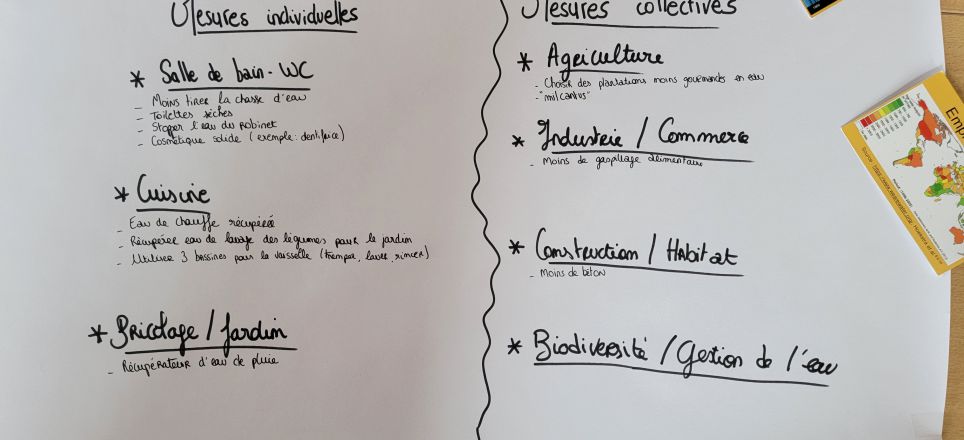 Mesures individuelles
* Salle de bain - WC
- Moins tirer la chasse d'eau
- Toilettes sèches
- Stoper l'eau du robinet
- Cosmétique solide (exemple: dentifrice)
* Cuisine
- Eau de chauffe récupérée
- Récupérer eau de lavage des légumes pour le jardin
- Utiliser 3 bassines pour la vaisselle (tremper, laver, rincer)
* Bricolage / Jardin
- Récupérateur d'eau de pluie
Mesures collectives
* Agriculture
- Choisir des plantations moins gourmandes en eau
- "mil cactus"
* Industrie / Commerce
- Moins de gaspillage alimentaire
* Construction / Habitat
- Moins de béton
* Biodiversité / Gestion de l'eau
Emp